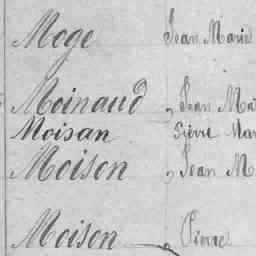 Moge Jean Marie
Moinaud " Jean Ma
Moisan Pierre Mar
Moison " Jean M
Moison " Pierre